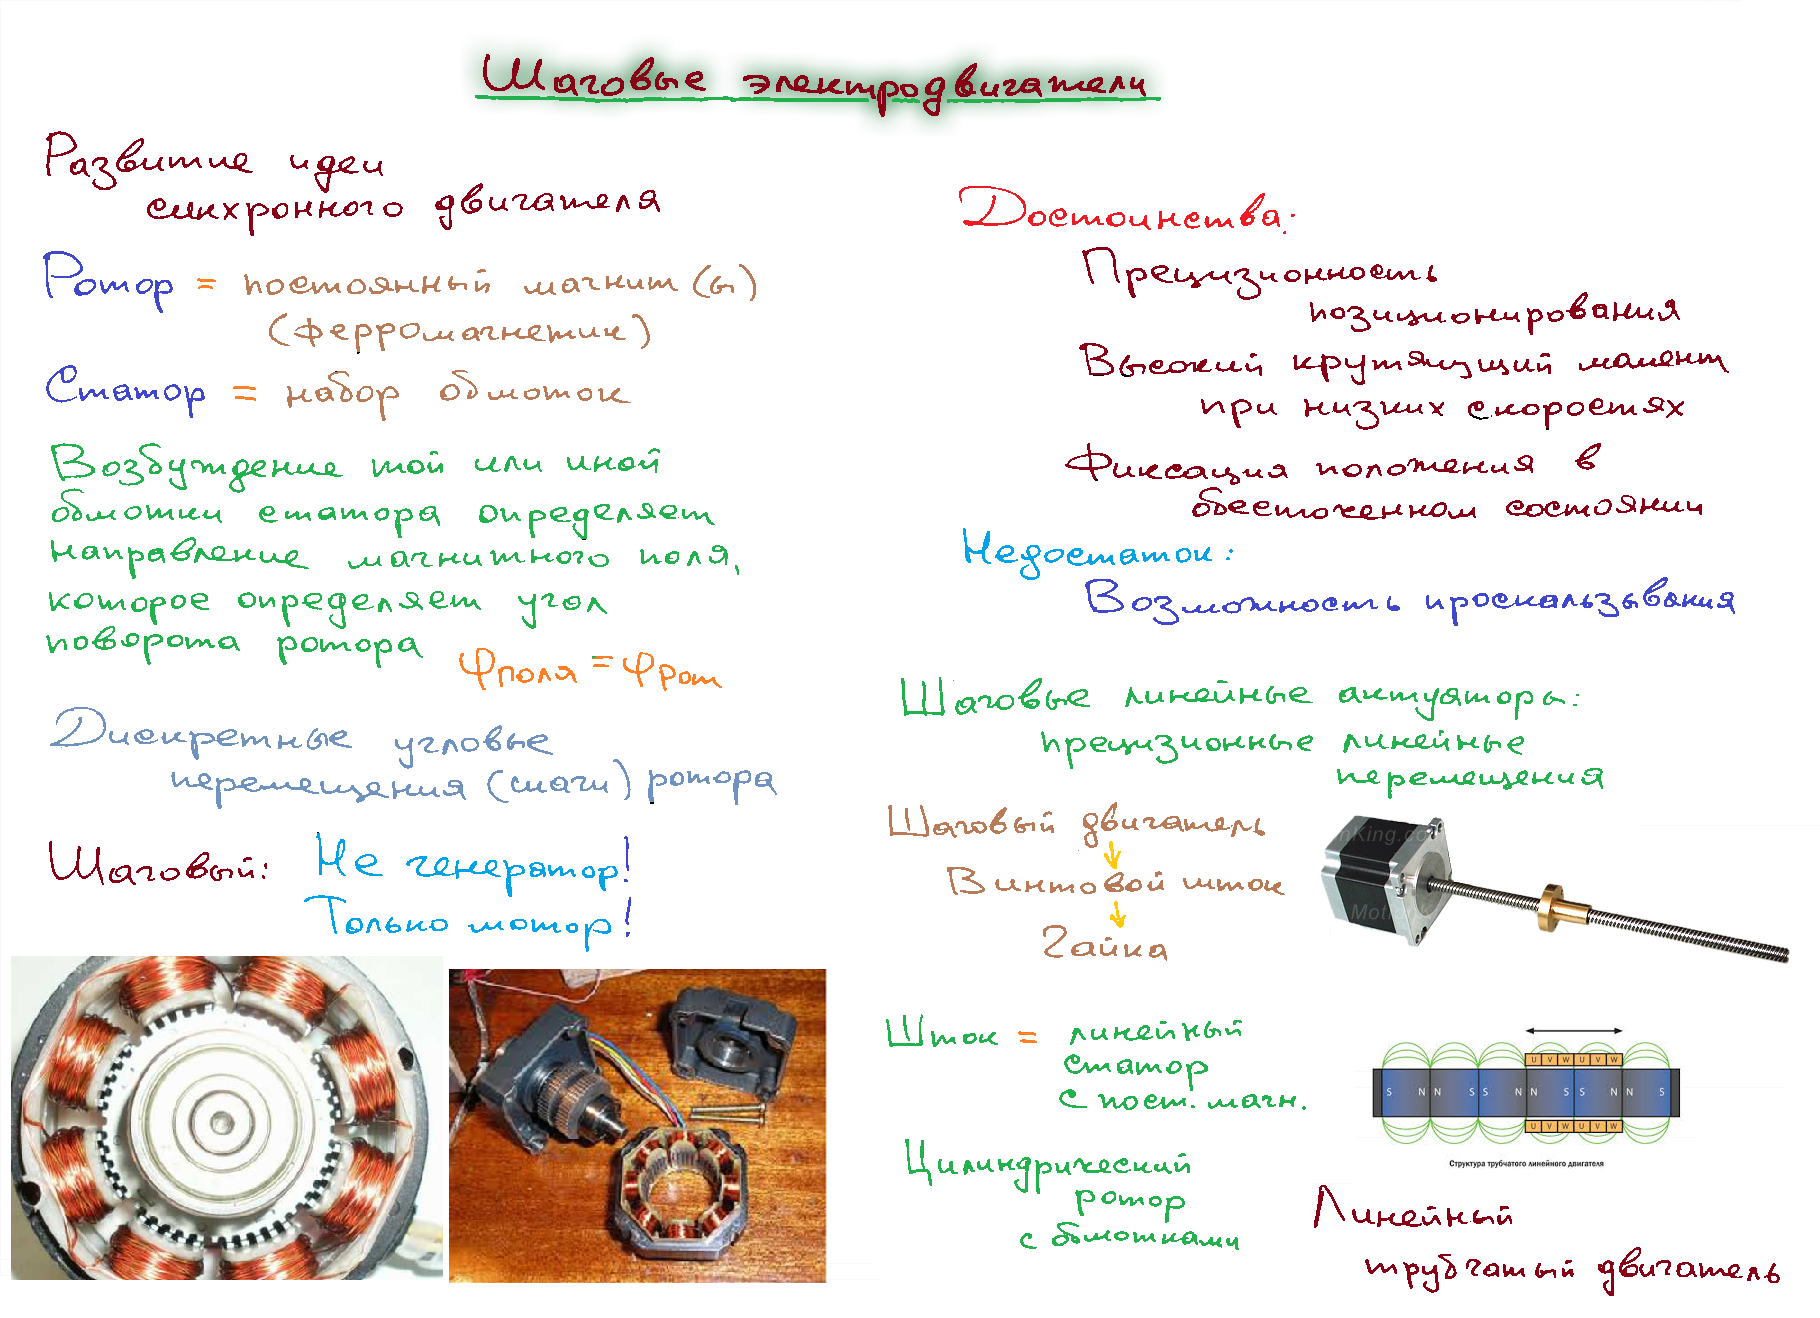 Шаговые электродвигатели
Развитие идеи
синхронного двигателя
Ротор = постоянный магнит (ы)
(ферромагнетик)
Статор = набор обмоток
Возбуждение той или иной
обмотки статора определяет
направление магнитного поля,
которое определяет угол
поворота ротора
φполя = φрот
Дискретные угловые
перемещения (шаги) ротора
Шаговый: Не генератор!
Только мотор!
Достоинства:
Прецизионность
позиционирования
Высокий крутящий момент
при низких скоростях
Фиксация положения в
обесточенном состоянии
Недостаток:
Возможность проскальзывания
Шаговые линейные актуаторы:
прецизионные линейные
перемещения
Шаговый двигатель
Винтовой шток
Гайка
Шток = линейный
статор
с пост. магн.
Цилиндрический
ротор
с обмотками
U V W U V W
S N N S S N N S S N N S
U V W U V W
Структура трубчатого линейного двигателя
Линейный
трубчатый двигатель